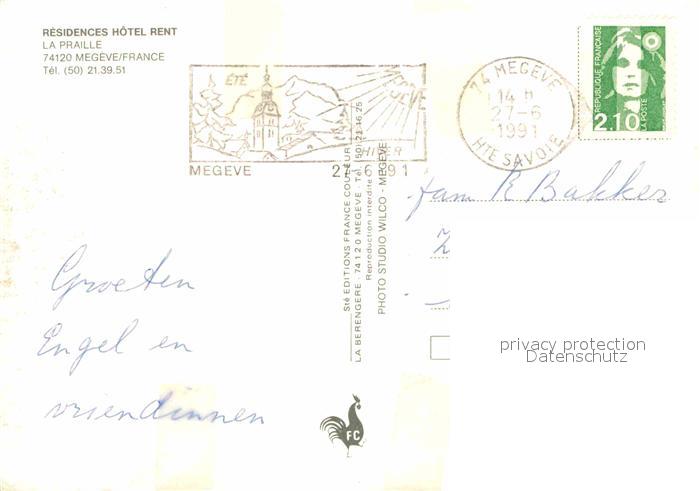 RÉSIDENCES HÔTEL RENT
LA PRAILLE
74120 MEGÈVE/FRANCE
Tél. (50) 21.39.51
ÉTÉ
HIVER
MEGEVE
27-6 91
74 MEGEVE
14 H
27-6
1991
HTE SAVOIE
REPUBLIQUE FRANÇAISE
LA POSTE
2,10
Fam R Bakker
Groeten
Engel en
vriendinnen
Sté EDITIONS FRANCE COULEUR
LA BERENGERE - 74120 MEGEVE - Tél. (50) 21.46.25
Reproduction interdite
PHOTO STUDIO WILCO - MEGEVE
FC
privacy protection
Datenschutz